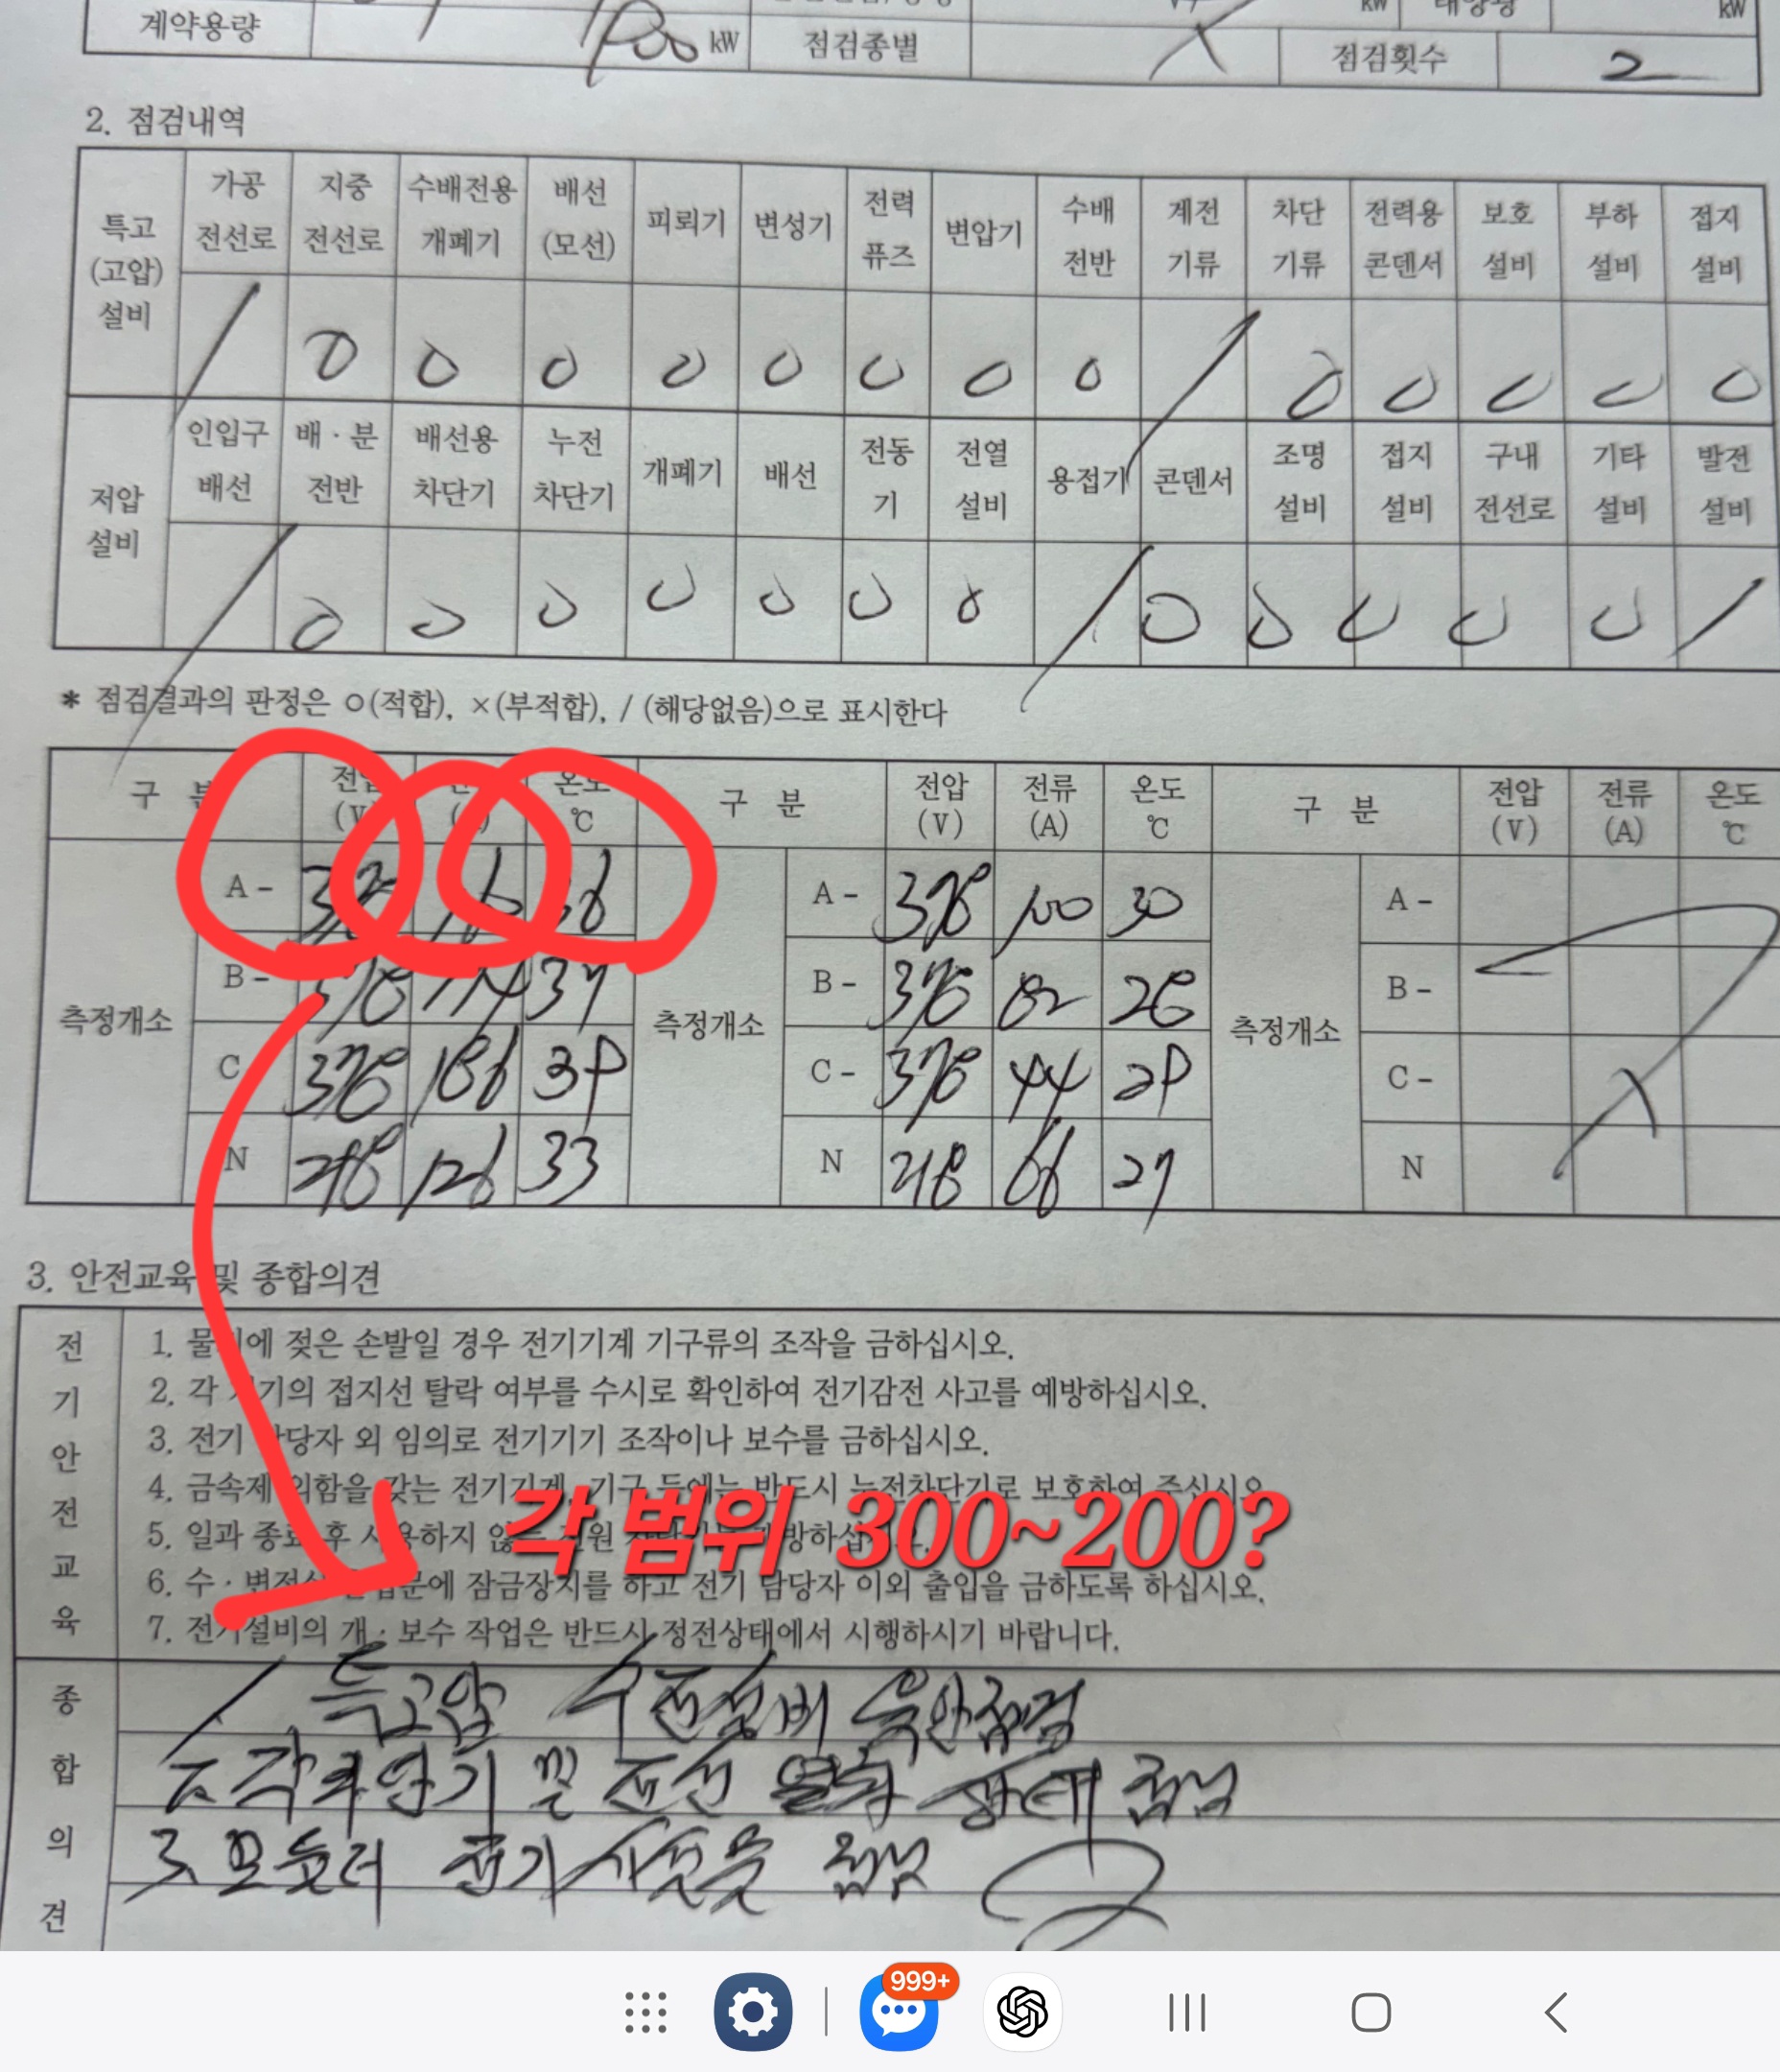 계약용량 kW 점검종별 점검횟수 2
kW 태양광 kW
2. 점검내역
특고 (고압) 설비 가공 전선로 지중 전선로 수배전용 개폐기 배선 (모선) 피뢰기 변성기 전력 퓨즈 변압기 수배 전반 계전 기류 차단 기류 전력용 콘덴서 보호 설비 부하 설비 접지 설비
/ O O O O O O O O / O O O O O
저압 설비 인입구 배선 배·분 전반 배선용 차단기 누전 차단기 개폐기 배선 전동 기 전열 설비 용접기 콘덴서 조명 설비 접지 설비 구내 전선로 기타 설비 발전 설비
/ O O O O O O O / O O O O O /
* 점검결과의 판정은 O(적합), ×(부적합), / (해당없음)으로 표시한다
구 전압 (V) 온도 ℃ 구 분 전압 (V) 전류 (A) 온도 ℃ 구 분 전압 (V) 전류 (A) 온도 ℃
측정개소 측정개소 측정개소
A - A - 378 100 30 A -
B - 378 174 37 B - 378 82 28 B -
C 378 186 39 C - 378 44 29 C -
N 218 126 33 N 218 66 27 N
3. 안전교육 및 종합의견
전기안전교육
1. 에 젖은 손발일 경우 전기기계 기구류의 조작을 금하십시오.
2. 각 기의 접지선 탈락 여부를 수시로 확인하여 전기감전 사고를 예방하십시오.
3. 전기 당자 외 임의로 전기기기 조작이나 보수를 금하십시오.
4. 금속제 외함을 갖는 전기기계, 기구 등에는 반드시 누전차단기로 보호하여 주십시오
5. 일과 종료 후 사용하지 않는 전원
각 범위 300~200?
6. 수·변전실 출입문에 잠금장치를 하고 전기 담당자 이외 출입을 금하도록 하십시오.
7. 전기설비의 개·보수 작업은 반드시 정전상태에서 시행하시기 바랍니다.
종합의견
1. 특고압 수전설비 육안점검
2. 각 변압기 및 전선 열화 상태 점검
3. 모듈러 전기 시설물 점검
999+